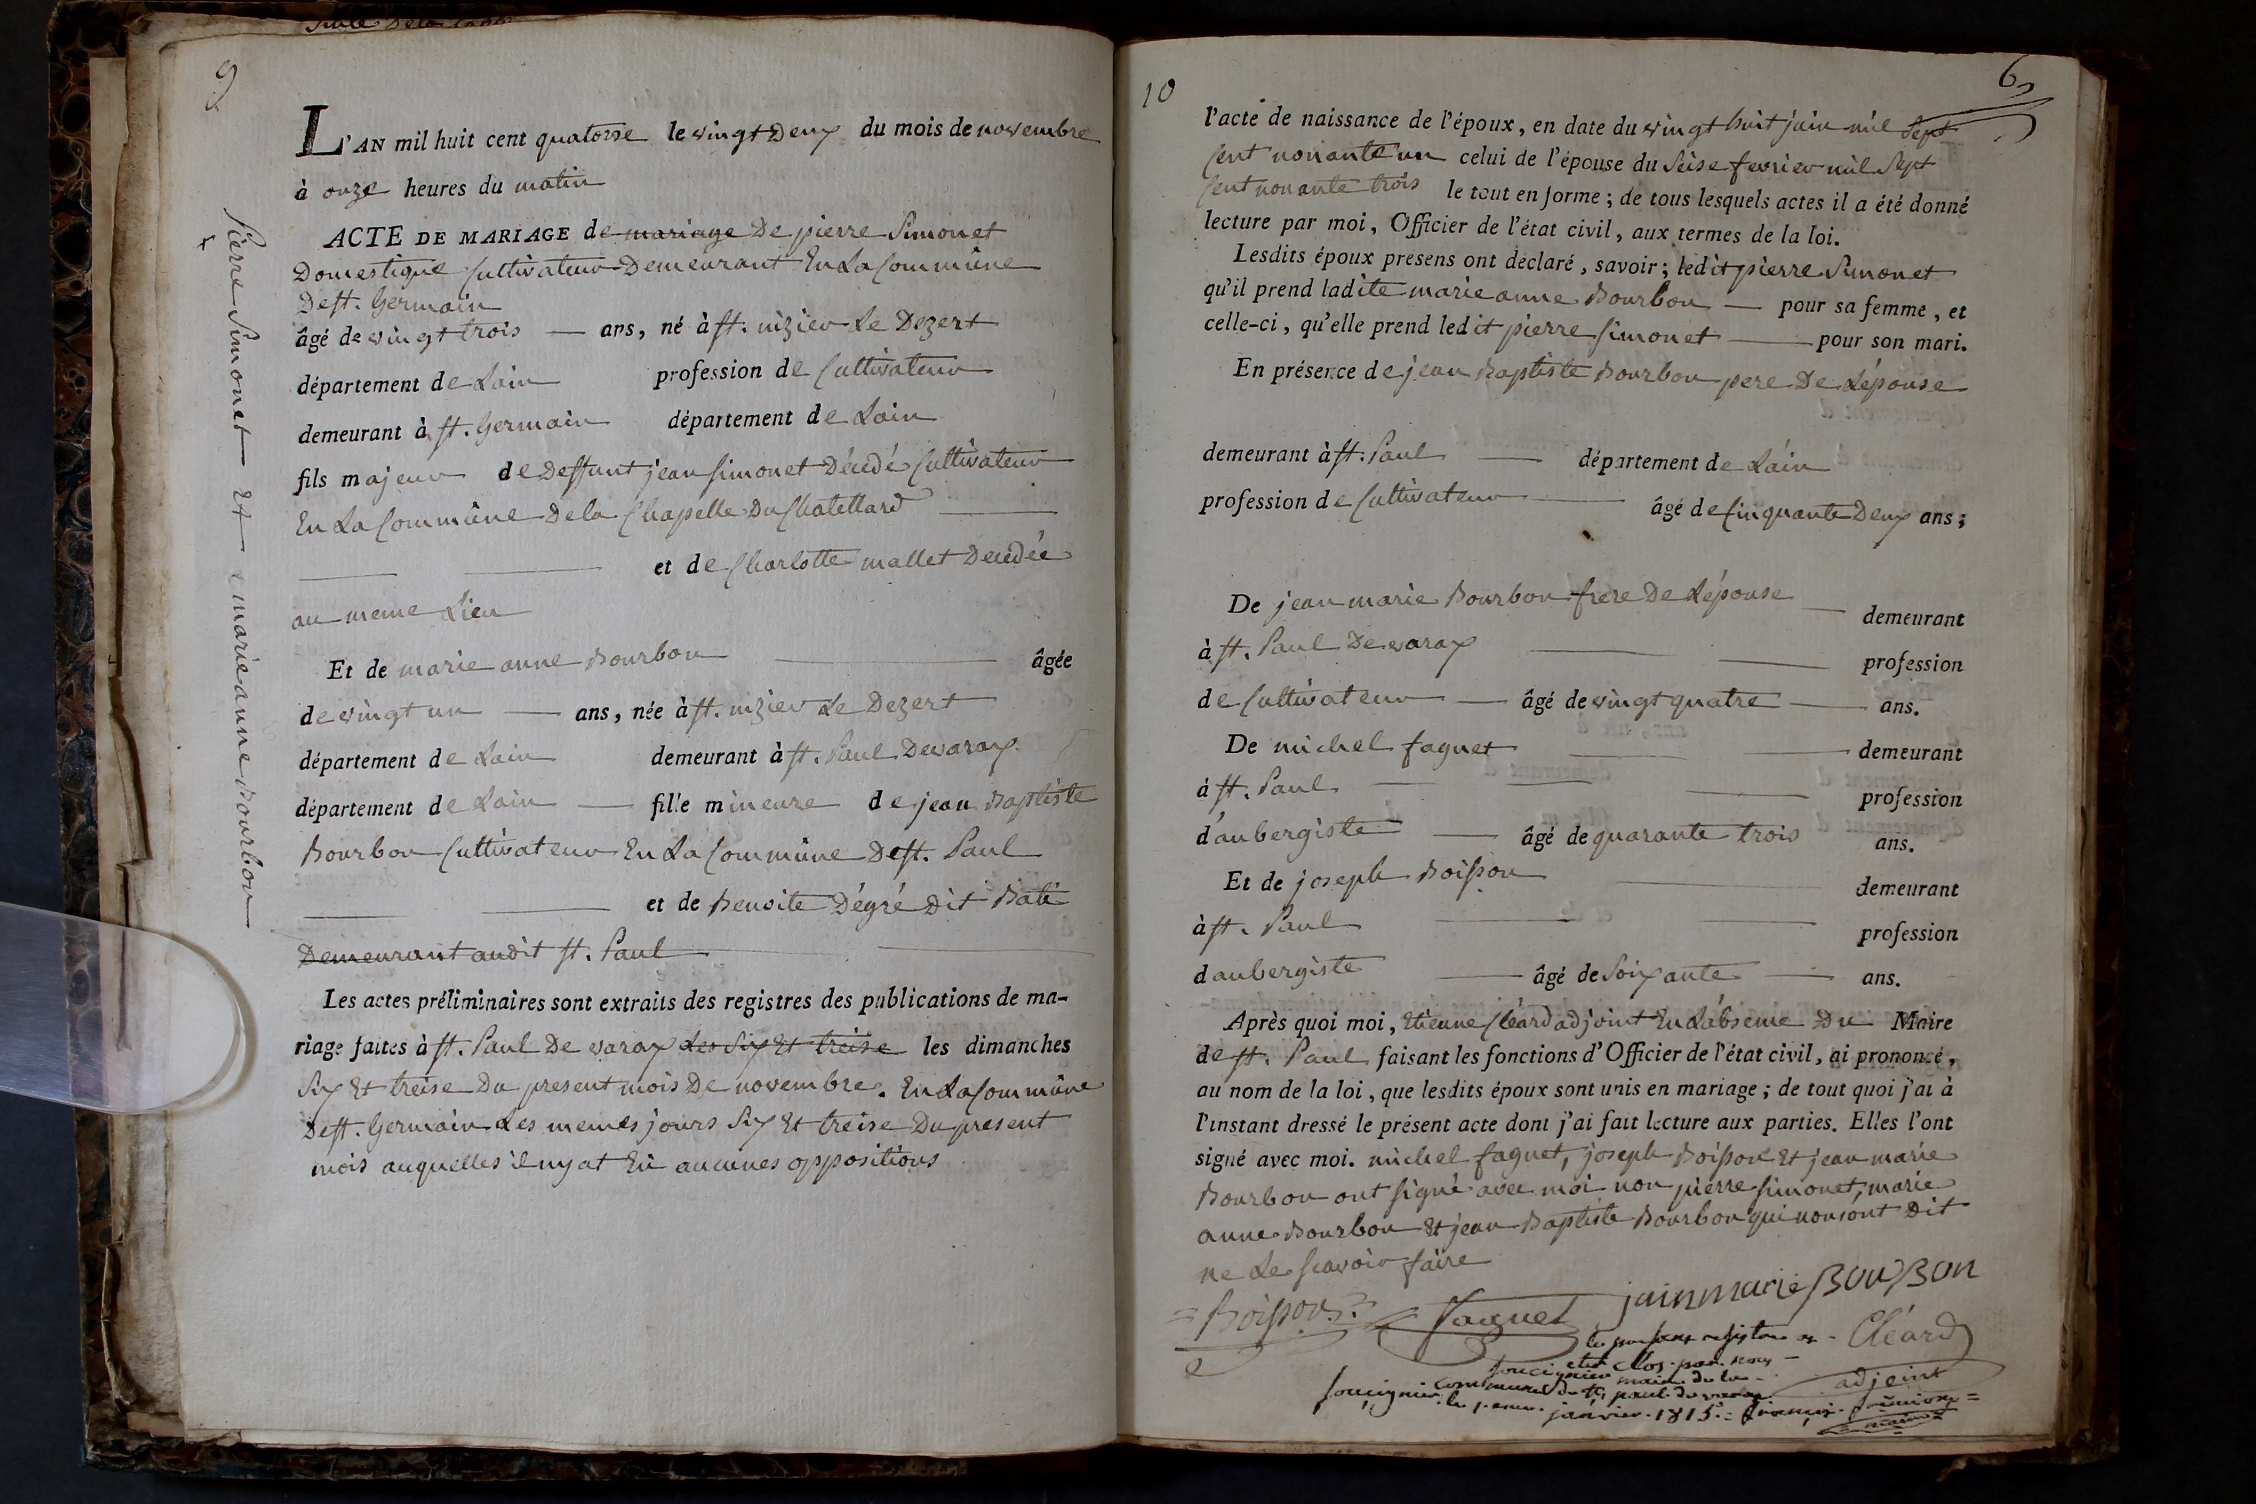 9
Pierre Simonet Et marie anne Bourbon
L'AN mil huit cent quatorse le vingt Deux du mois de novembre
à onze heures du matin
ACTE DE MARIAGE de mariage De pierre Simonet
Domestique Cultivateur Demeurant En La Commune
De st. Germain
âgé de vingt trois ans, né à st. nizier Le Dezert
département de Lain profession de Cultivateur
demeurant à st. Germain département de Lain
fils majeur de Deffunt jean Simonet Décédé Cultivateur
En La Commune De la Chapelle Du Chatellard
et de Charlotte mallet Decédée
au meme Lieu
Et de marie anne Bourbon âgée
de vingt un ans, née à st. nizier Le Dezert
département de Lain demeurant à st. Paul Devarax
département de Lain fille mineure de jean Baptiste
Bourbon Cultivateur En La Commune De st. Paul
et de Benoite Dégré Dit Bati
Demeurant audit st. Paul
Les actes préliminaires sont extraits des registres des publications de ma-
riage faites à st. Paul De varax Les Six Et treise les dimanches
Six Et treise Du present mois De novembre. En La Commune
De st. Germain Les memes jours Six Et treise Du present
mois auquelles il ny at Eü aucunes oppositions
10
6
l'acte de naissance de l'époux, en date du vingt huit juin mil Sept
Cent nonante un celui de l'épouse du Seise fevrier mil Sept
Cent nonante trois le tout en forme; de tous lesquels actes il a été donné
lecture par moi, Officier de l'état civil, aux termes de la loi.
Lesdits époux presens ont déclaré, savoir; ledit pierre Simonet
qu'il prend ladite marie anne Bourbon pour sa femme, et
celle-ci, qu'elle prend ledit pierre Simonet pour son mari.
En présence de jean Baptiste Bourbon pere De Lépouse
demeurant à st. Paul département de Lain
profession de Cultivateur âgé de Cinquante Deux ans;
De jean marie Bourbon frere De Lépouse demeurant
à st. Paul De varax profession
de Cultivateur âgé de vingt quatre ans.
De michel faguet demeurant
à st. Paul profession
d'aubergiste âgé de quarante trois ans.
Et de joseph Boisson demeurant
à st. Paul profession
daubergiste âgé de Soixante ans.
Après quoi moi, Etienne Cléard adjoint En Labsence Du Maire
de st. Paul faisant les fonctions d'Officier de l'état civil, ai prononcé,
au nom de la loi, que lesdits époux sont unis en mariage; de tout quoi j'ai à
l'instant dressé le présent acte dont j'ai fait lecture aux parties. Elles l'ont
signé avec moi. michel faguet, joseph Boisson Et jean marie
Bourbon ont signé avec moi non pierre Simonet, marie
anne Bourbon Et jean Baptiste Bourbon qui nonsont Dit
ne Le scavoir faire
Boisson faguet jainmarie BOUrBOn
Cléard
adjoint
le present registre a
eté Clos par nous
soucignier maire de la
commune de st paul de varax
soucignier le 1.
janvier 1815 françois
maire